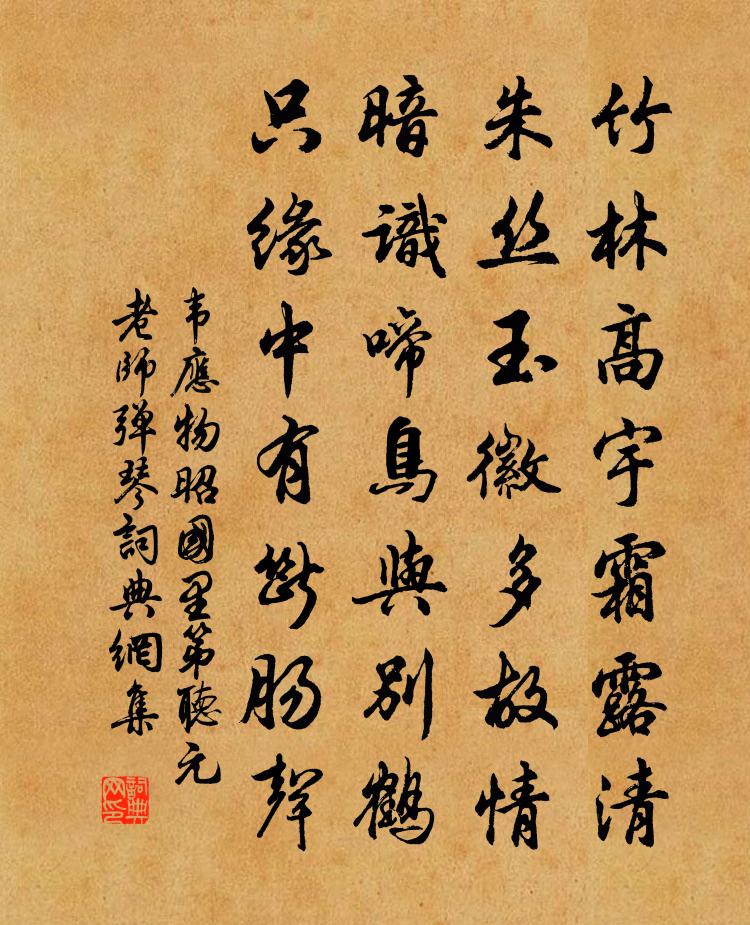 竹林高宇霜露清
朱丝玉徽多故情
暗識啼鳥與別鶴
只缘中有斷肠聲
韦應物昭國里第聽元
老師弹琴詞典網集
詞典
网印